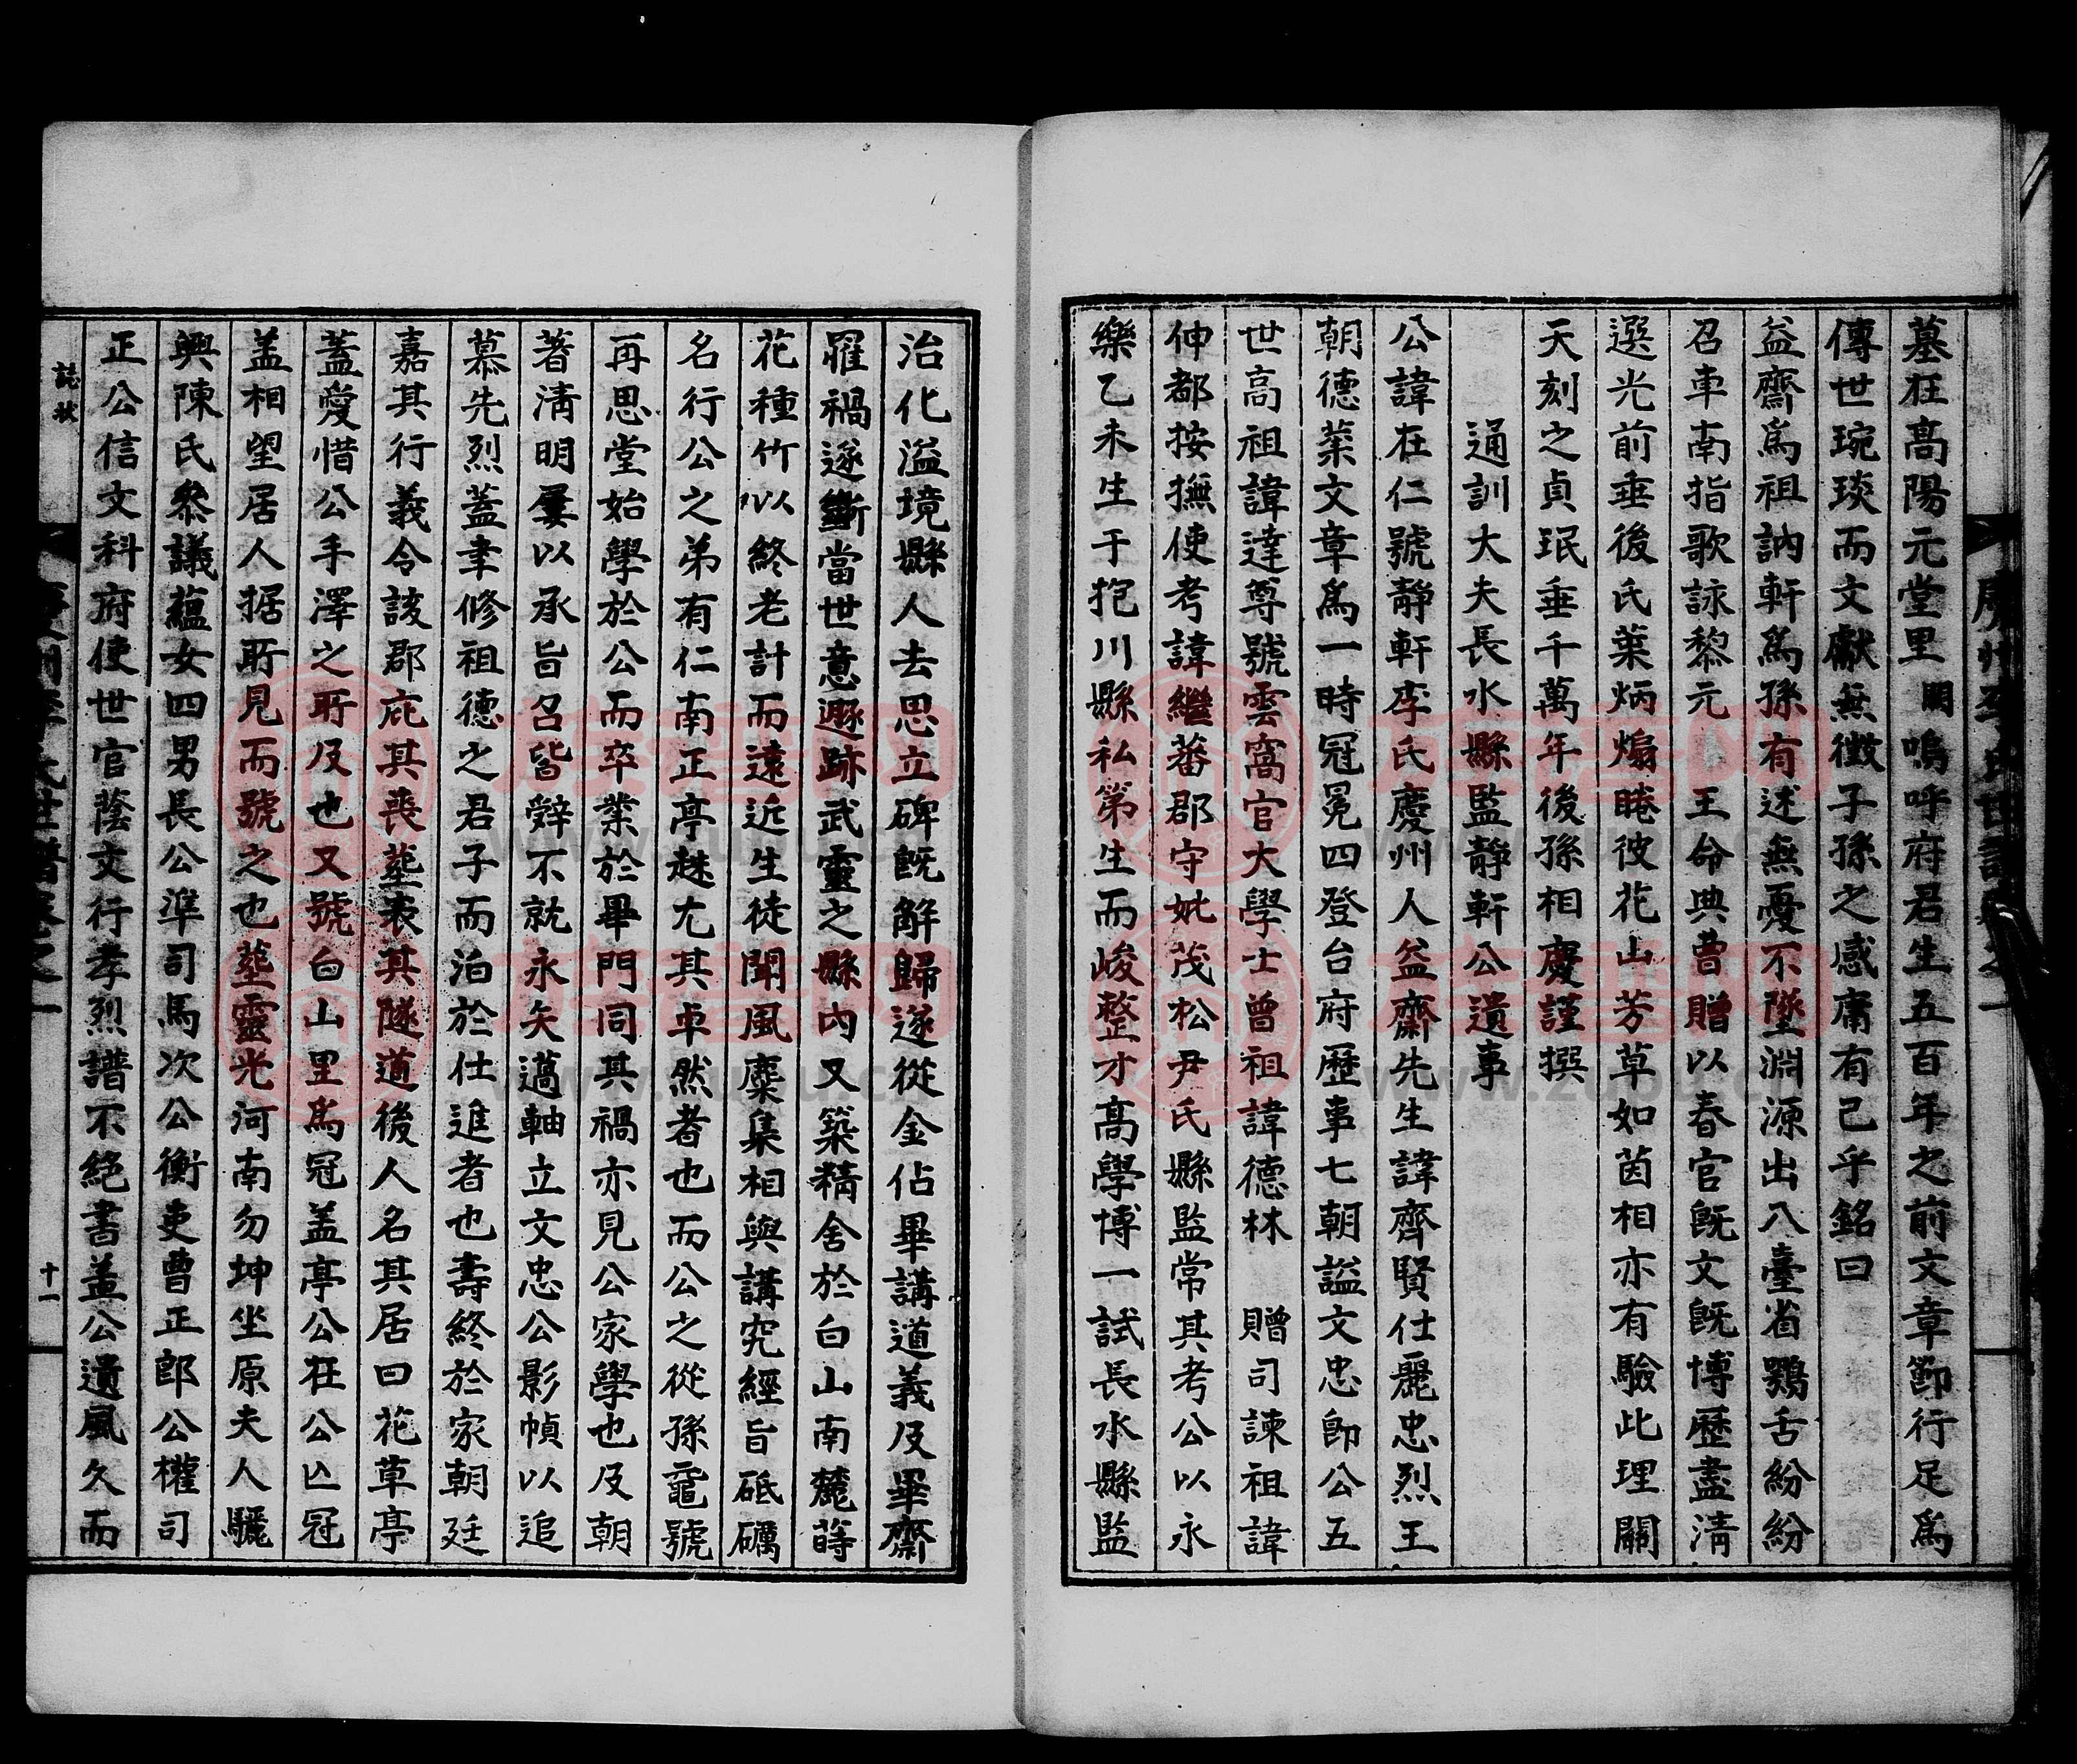 墓在高陽元堂里 嗚呼府君生五百年之前文章節行足爲
傳世琬琰而文獻無徵子孫之感庸有已乎銘曰
益齋爲祖訥軒爲孫有述無憂不墜淵源出入臺省鶚舌紛紛
召車南指歌詠黎元 王命典曹贈以春官旣文旣博歷盡淸
選光前垂後氏葉炳煽睠彼花山芳草如茵相亦有驗此理關
天刻之貞珉垂千萬年後孫相慶謹撰
通訓大夫長水縣監靜軒公遺事
公諱在仁號靜軒李氏慶州人益齋先生諱齊賢仕麗忠烈王
朝德業文章爲一時冠冕四登台府歷事七朝謚文忠卽公五
世高祖諱達尊號雲窩官大學士曾祖諱德林 贈司諫祖諱
伸都按撫使考諱繼蕃郡守妣茂松尹氏縣監常其考公以永
樂乙未生于抱川縣私第生而峻整才高學博一試長水縣監
治化溢境縣人去思立碑旣解歸遂從金佔畢講道義及畢齋
罹禍遂斷當世意遯跡武靈之縣內又築精舍於白山南麓蒔
花種竹以終老計而遠近生徒聞風麋集相與講究經旨砥礪
名行公之弟有仁南正亭趎尤其卓然者也而公之從孫黿號
再思堂始學於公而卒業於畢門同其禍亦見公家學也及朝
著淸明屢以承旨召皆辭不就永矢薖軸立文忠公影幀以追
慕先烈蓋聿修祖德之君子而泊於仕進者也壽終於家朝廷
嘉其行義令該郡庇其喪葬表其隧道後人名其居曰花草亭
蓋愛惜公手澤之所及也又號白山里爲冠盖亭公在公亡冠
盖相望居人据所見而號之也葬靈光河南勿坤坐原夫人驪
興陳氏參議蘊女四男長公準司馬次公衡吏曹正郎公權司
正公信文科府使世官蔭文行孝烈譜不絶書盖公遺風久而
誌狀
十一